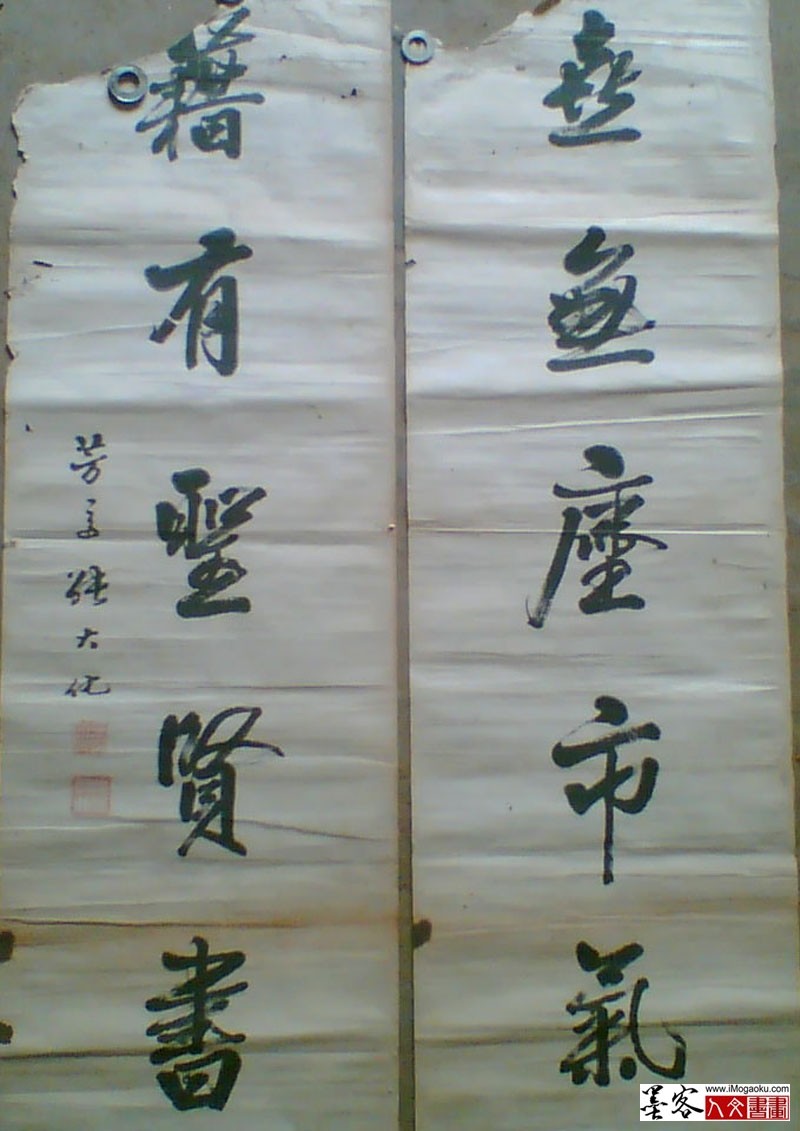 喜無塵市氣
籍有聖賢書
張大化
墨客
www.iMogaoku.com
人文書畫